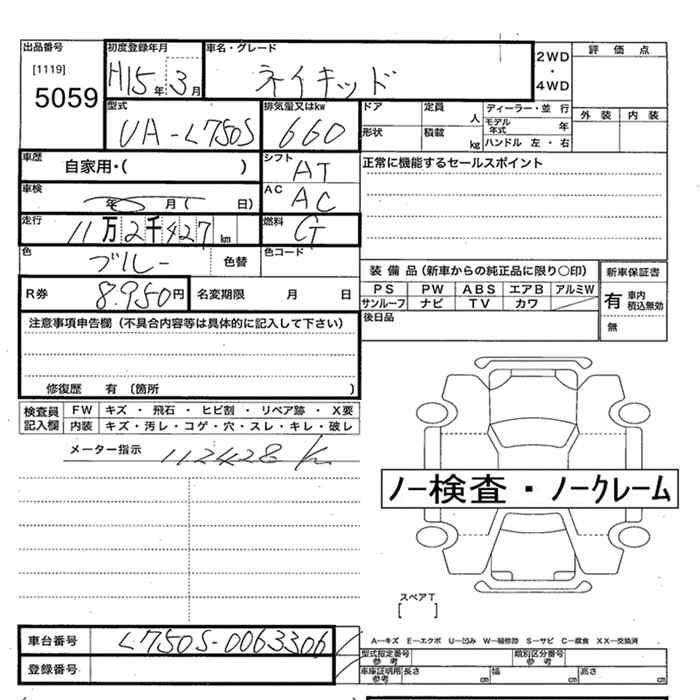 出品番号 初度登録年月 車名・グレード 2WD・4WD 評価点
[1119] 5059 H15年3月 ネイキッド 外装 内装
型式 排気量又はkw ドア 定員 人 ディーラー・並行
UA-L750S 660 形状 積載 kg モデル年式 年 ハンドル 左・右
車歴 自家用・( ) シフト AT 正常に機能するセールスポイント
車検 年 月( 日) AC AC
走行 11万2千427km 燃料 G
色 ブルー 色替 色コード
装備品(新車からの純正品に限り〇印) 新車保証書
R券 8.950円 名変期限 月 日 PS PW ABS エアB アルミW 有 車内積込無効
サンルーフ ナビ TV カワ
注意事項申告欄(不具合内容等は具体的に記入して下さい) 後日品 無
修復歴 有 〔箇所 〕
検査員記入欄 FW キズ・飛石・ヒビ割・リペア跡・X要
内装 キズ・汚レ・コゲ・穴・スレ・キレ・破レ
メーター指示 112428 K
ノー検査・ノークレーム
スペアT
[ ]
車台番号 L750S-0063306
A-キズ E-エクボ U-凹み W-補修跡 S-サビ C-腐食 XX-交換済
型式指定番号 参考 類別区分番号 参考
登録番号 車庫証明用 参考 長さ cm 幅 cm 高さ cm